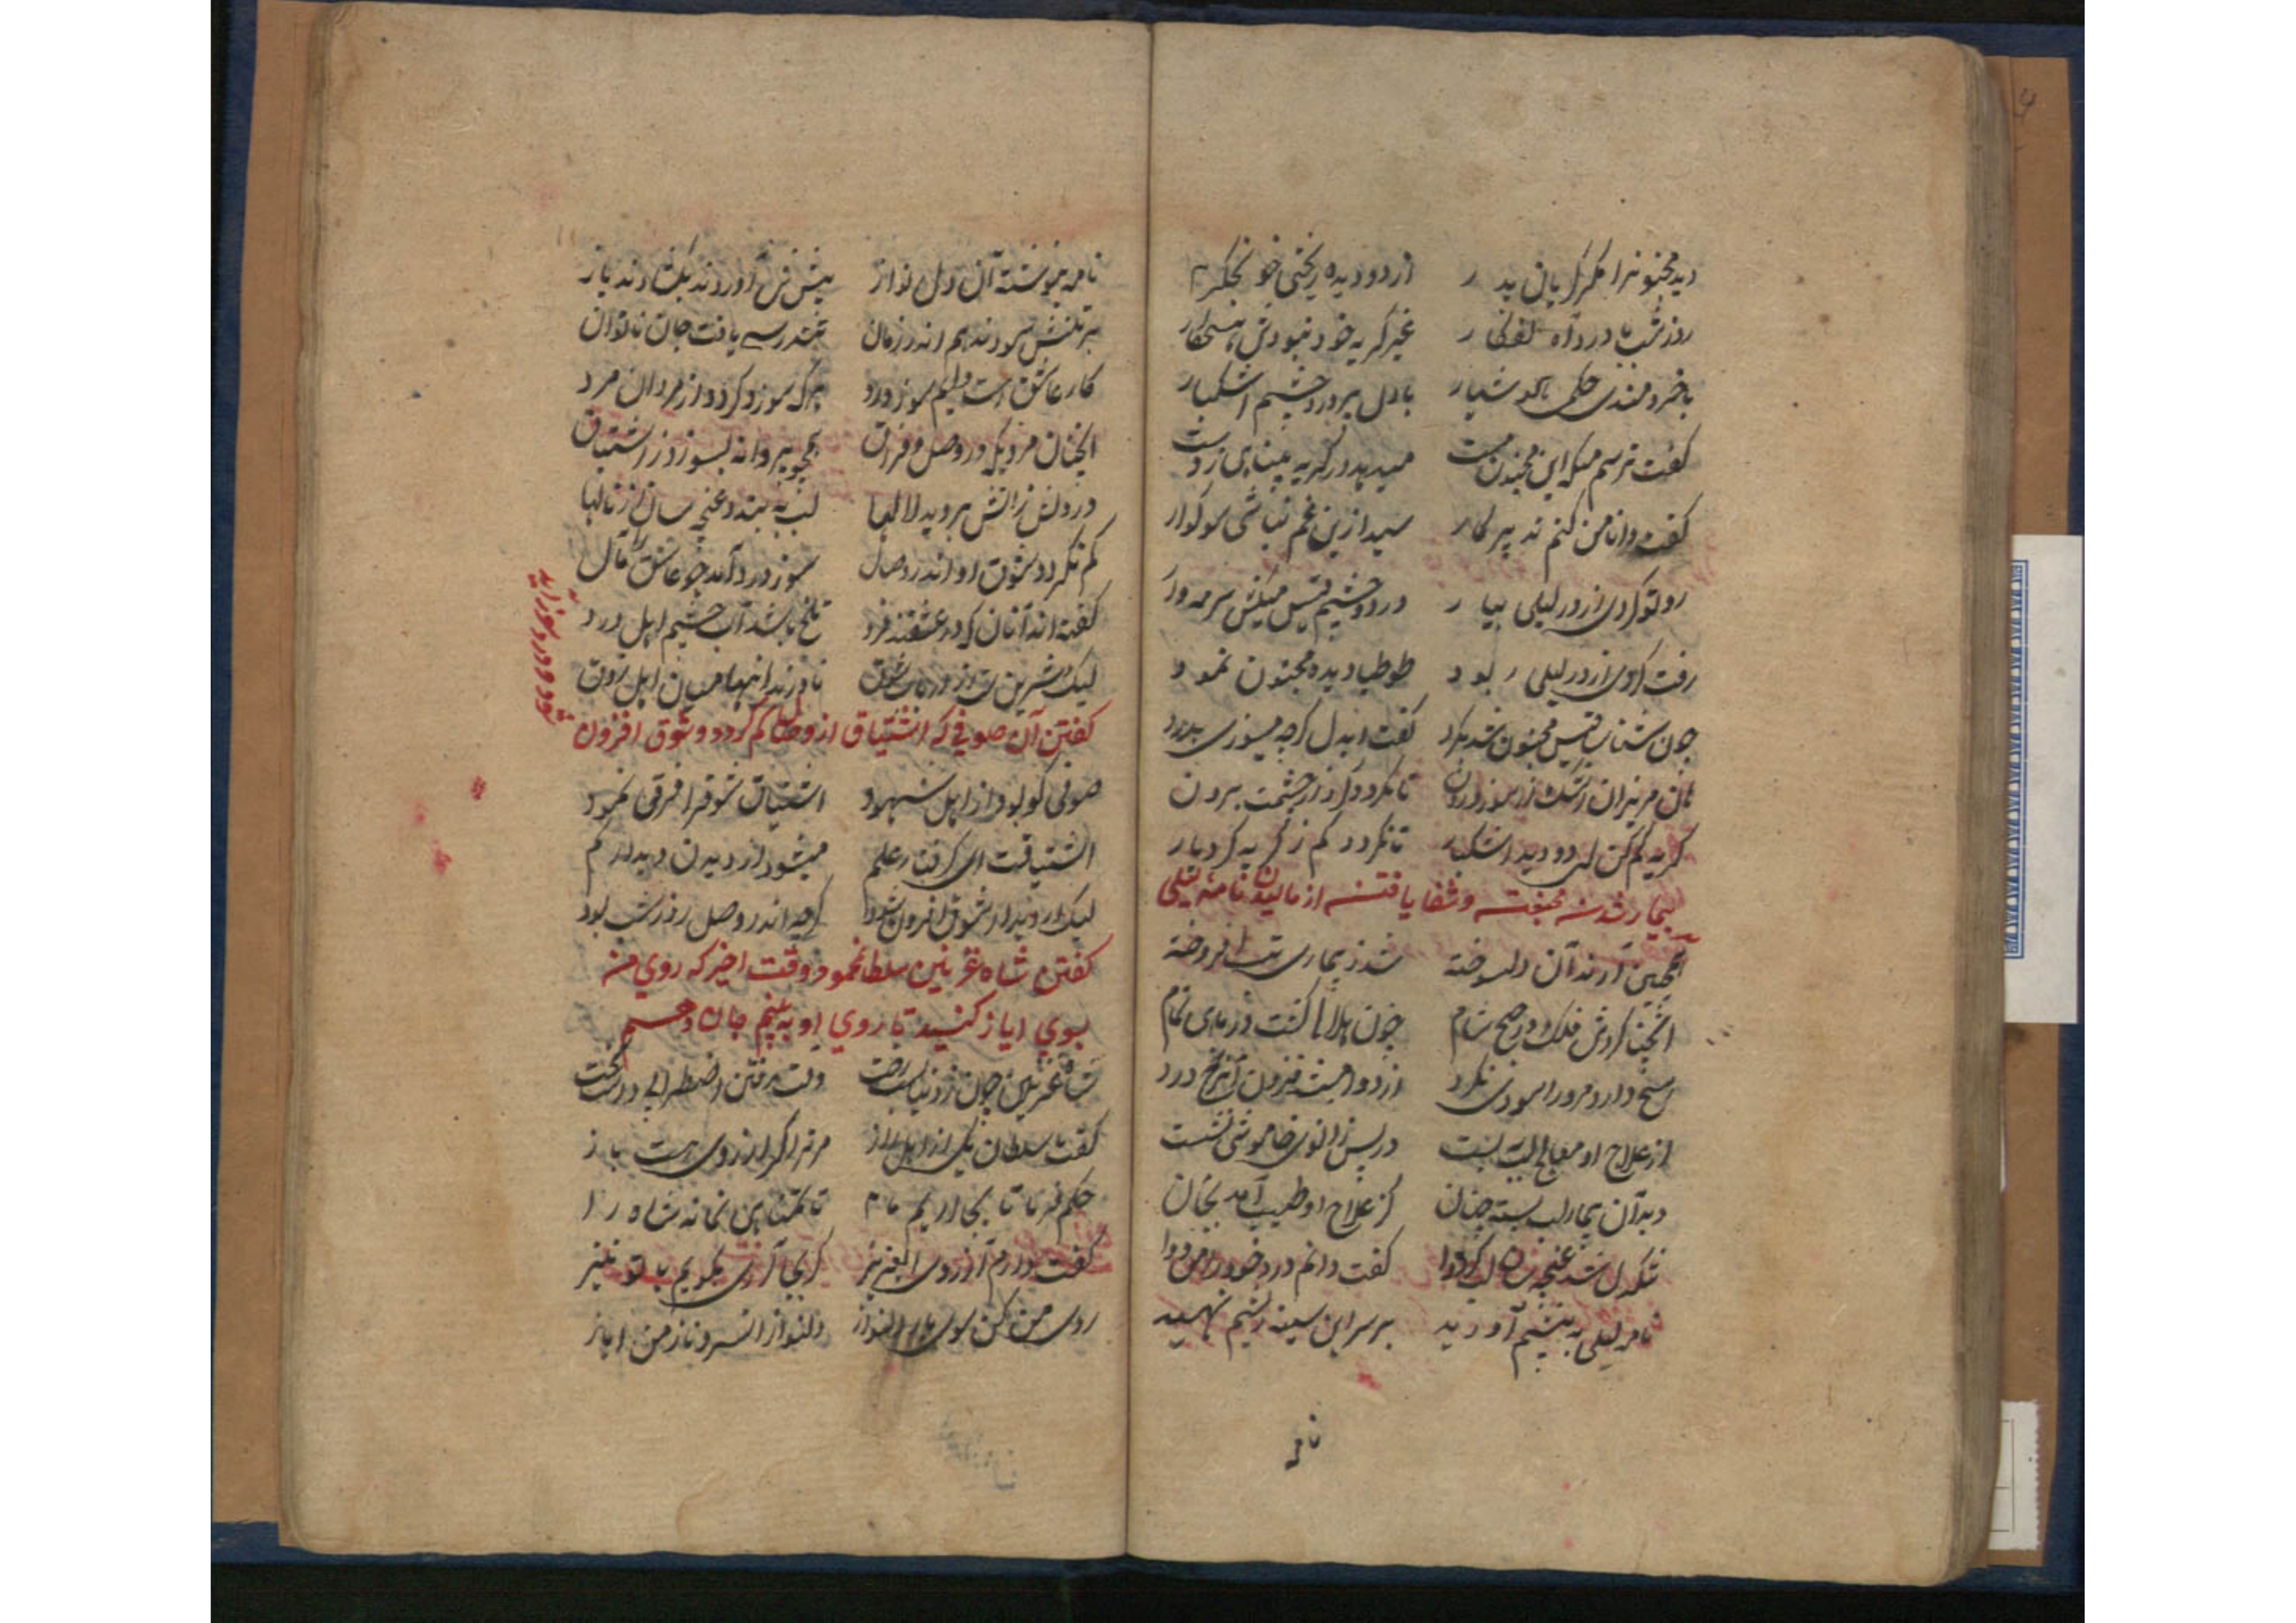 دید مجنونرا مگر گریان پدر از دو دیده ریختی خون جگر
روز شب با درد آه
غیر گریه خود نبودش هیچکار
با خردمندی حکیمی هوشیار با دل پر درد چشم اشکبار
گفت ترسم من که این مجنون مست میدهد در گریه بینایی ز دست
گفت دانا من کنم تدبیر کار سید ازین غم نباشی سوگوار
رو تو گردی از در لیلی بیار در دو چشم قیس میکش سرمه وار
رفت گردی از در لیلی ربود طوطیا دیده مجنون نمود
چون شناسا قیس مجنون شد بگرد گفت ایدل گرچه میسوزی بدرد
هان مریزان اشک از سوز درون تا نگردد گرد از چشمت برون
گریه کم کن ای دو دیده اشکبار تا نگردد کم ز گریه گرد یار
بیمار شدن مجنون و شفا یافتن از مالیدن نامه لیلی
همچنین آرند آن دلسوخته شد ز بیماری تب افروخته
آنچنان گردش فلک در صبح شام چون هلالی گشت در ماهی تمام
هیچ دارو مرورا سودی نکرد از دوا میشد فزون رنج درد
از علاج او معالج لب ببست در پس زانوی خاموشی نشست
دید آن بیمار لب بسته چنان کز علاج او طبیب آمد بجان
تنگدل شد غنچه سان لب کرد وا گفت دانم درد خود را من دوا
نامه لیلی به پیشم آورید بر سر این سینه ریشم نهید
نامه
نامه بنوشته آن دل نواز پیش قیس آوردند بگشادند باز
بر تنش سودند هم اندر زمان تندرستی یافت جان ناتوان
کار عاشق هست دایم سوز درد هر که سوز و کرد و از مردان مرد
آنچنان مردی که در وصل و فراق همچو پروانه بسوزد ز اشتیاق
در دلش ز آتش بروید لالها لب به بندد غنچه سان از نالها
کم نگردد شوق او اندر وصال سوز درد آمد چو عاشق را مآل
گفته اند آنان که در عشقند فرد تلخ باشد آب چشم اهل درد
لیک شیرین است
نادرند اینها میان اهل ذوق
گفتن آن صوفی که اشتیاق از وصال کم گردد و شوق افزون
شود و درد بیفزاید
صوفی کو بود از اهل شهود اشتیاق شوقرا فرقی نمود
اشتیاقت ای گرفتار علم میشود از دیدن دیدار کم
لیک از دیدار شوق افزون شود گرچه اندر وصل روز شب بود
گفتن شاه غزنین سلطان محمود وقت اخیر که روی من
بسوی ایاز کنید تا روی او به بینم جان دهم
شاه غزنین چون ز دنیا بست رخت وقت رفتن اضطرابی داشت سخت
گفت سلطان یکی از اهل راز مر ترا گر آرزوی هست باز
حکم فرما تا بجا آریم ما تا تمنایی نماند شاه را
گفت دارم آرزوی ای عزیز گر بجا آری بگویم با تو نیز
روی من کن سوی یار دلنواز دلنواز سرو ناز من ایاز